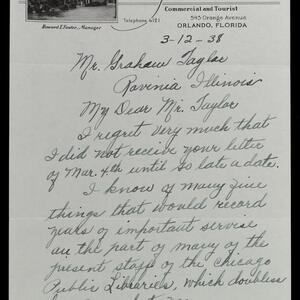 Commercial and Tourist
543 Orange Avenue
ORLANDO, FLORIDA
Howard I. Foster, Manager
Telephone
3-12-38
Mr. Graham Taylor
Ravinia Illinois
My Dear Mr. Taylor
I regret very much that
I did not receive your letter
of Mar. 9th until so late a date.
I know of many fine
things that would record
years of important servise
on the part of many of the
present staff of the Chicago
Public Libraries, which doubless